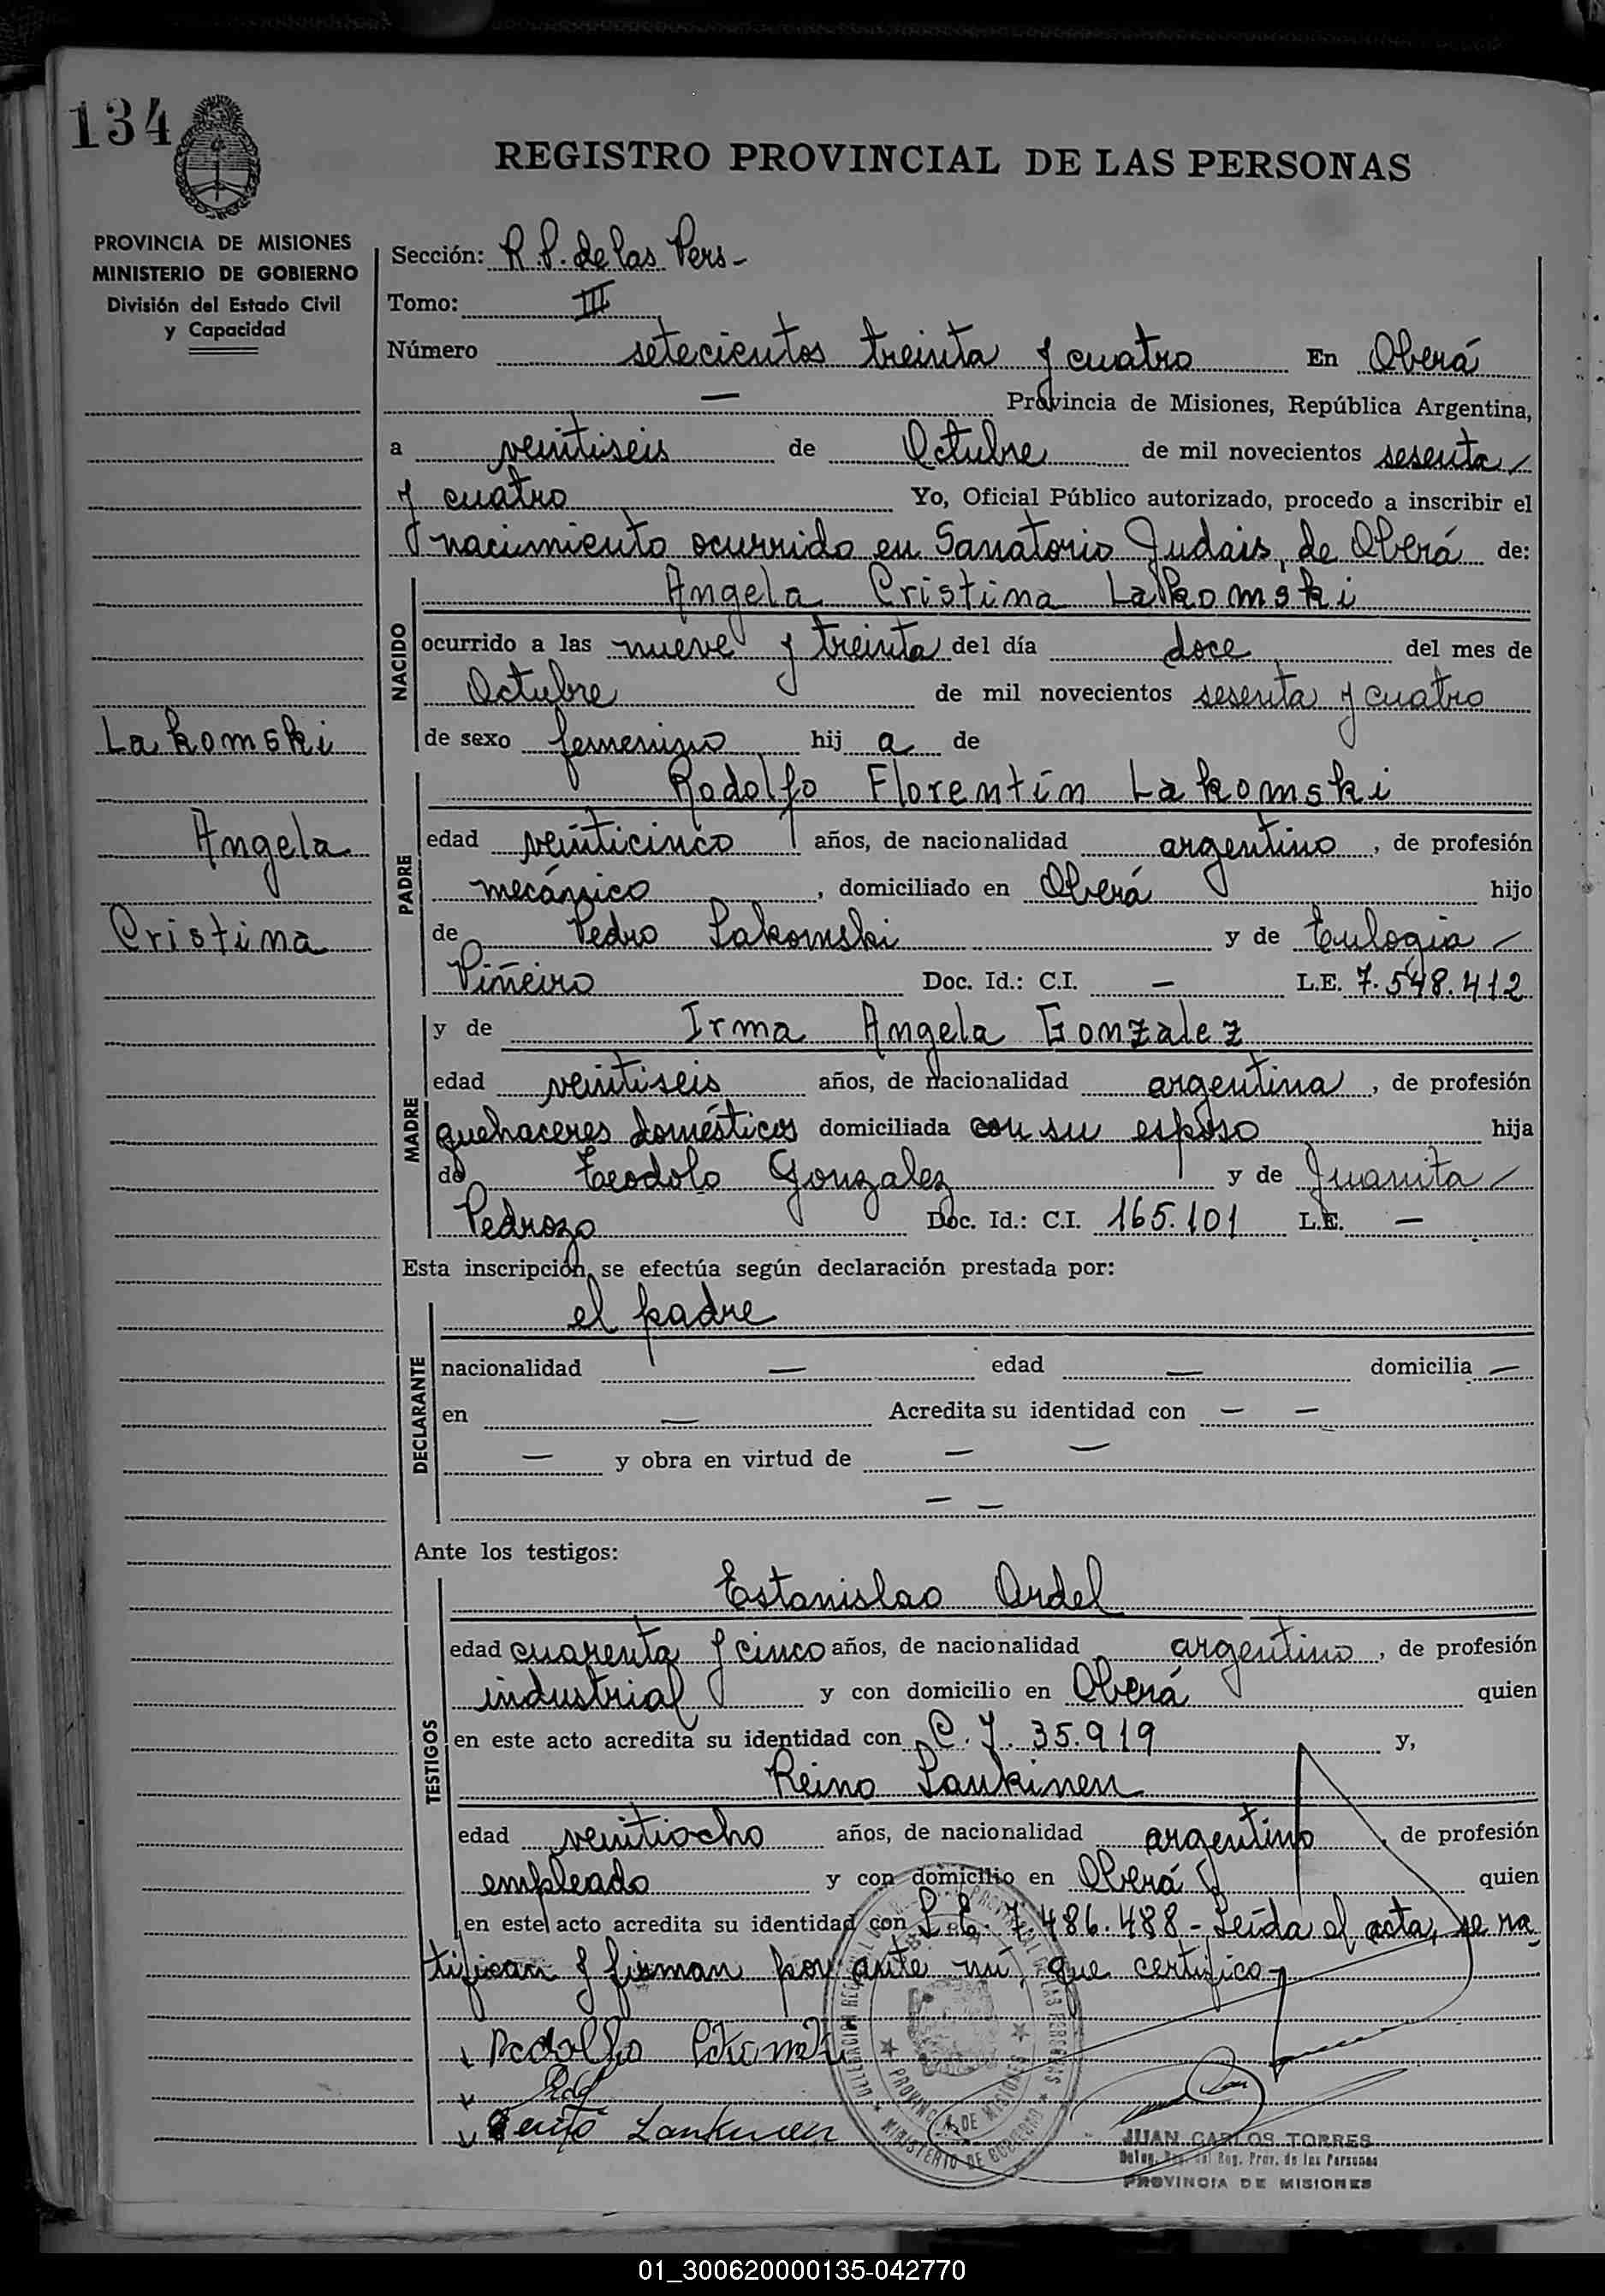 134
REGISTRO PROVINCIAL DE LAS PERSONAS
PROVINCIA DE MISIONES
MINISTERIO DE GOBIERNO
División del Estado Civil
y Capacidad
Sección: R.P. de las Pers-
Tomo: III
Número setecientos treinta y cuatro En Oberá
— Provincia de Misiones, República Argentina,
a veintiseis de Octubre de mil novecientos sesenta
y cuatro Yo, Oficial Público autorizado, procedo a inscribir el
nacimiento ocurrido en Sanatorio de Oberá de:
NACIDO
Angela Cristina Lakomski
ocurrido a las nueve y treinta del día doce del mes de
Octubre de mil novecientos sesenta y cuatro
de sexo femenino hij a de
Lakomski
Angela
Cristina
PADRE
Rodolfo Florentín Lakomski
edad veinticinco años, de nacionalidad argentino, de profesión
mecánico, domiciliado en Oberá hijo
de Pedro Lakomski y de Eulogia
Piñeiro Doc. Id.: C.I. — L.E. 7.548.412
MADRE
y de Irma Angela Gonzalez
edad veintiseis años, de nacionalidad argentina, de profesión
quehaceres domésticos domiciliada con su esposo hija
de Teodolo Gonzalez y de Juanita
Pedrozo Doc. Id.: C.I. 165.101 L.E. —
Esta inscripción, se efectúa según declaración prestada por:
DECLARANTE
el padre
nacionalidad — edad — domicilia —
en — Acredita su identidad con — —
— y obra en virtud de — —
— —
Ante los testigos:
TESTIGOS
Estanislao Ardel
edad cuarenta y cinco años, de nacionalidad argentino, de profesión
industrial y con domicilio en Oberá quien
en este acto acredita su identidad con C.I. 35.919 y,
Reino Laukinen
edad veintiocho años, de nacionalidad argentino, de profesión
empleado y con domicilio en Oberá quien
en este acto acredita su identidad con L.E. 7.486.488 - Leída el acta, se ra
tifican y firman por ante mí, que certifico-
Rodolfo
JUAN CARLOS TORRES
Reg. Prov. de las Personas
PROVINCIA DE MISIONES
PROVINCIA DE MISIONES
MINISTERIO DE GOBIERNO
01_300620000135-042770